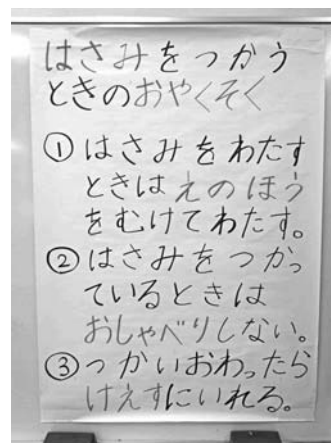 はさみをつかう
ときのおやくそく
①はさみをわたす
ときはえのほう
をむけてわたす。
②はさみをつかっ
ているときは
おしゃべりしない。
③つかいおわったら
けえすにいれる。